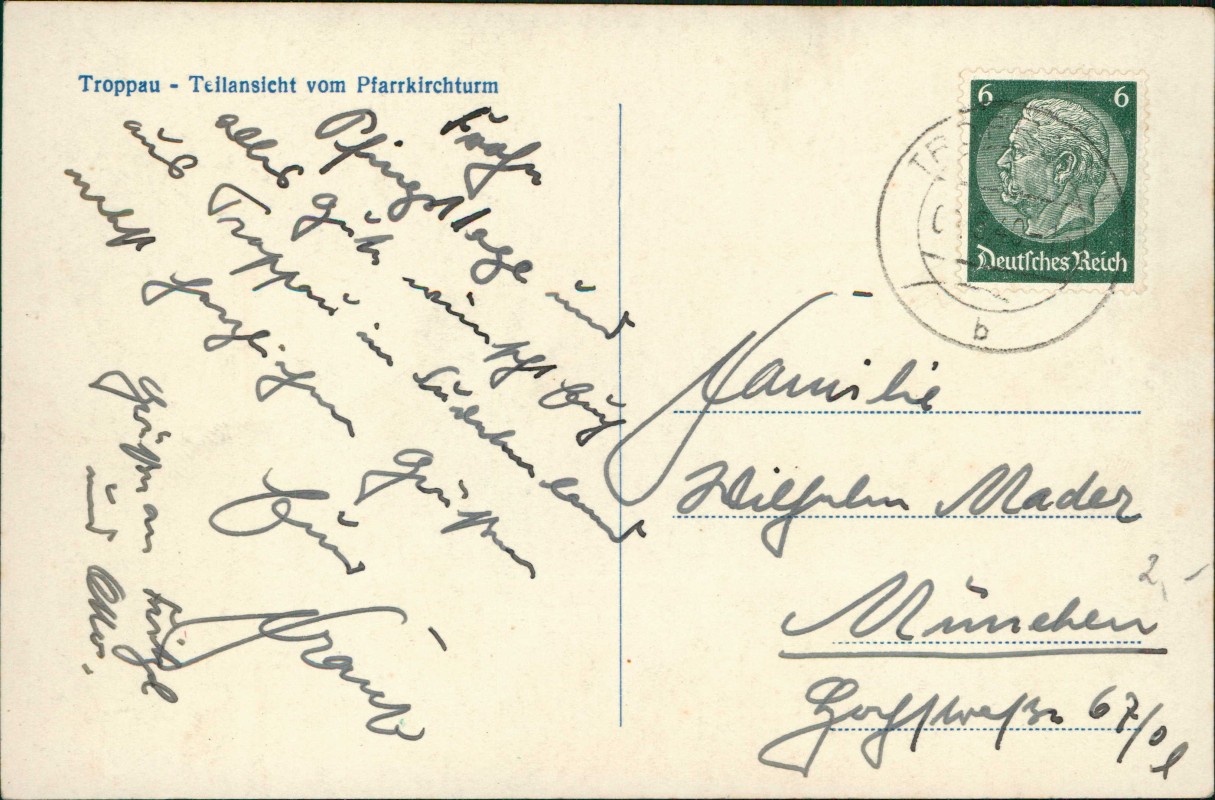 Troppau - Teilansicht vom Pfarrkirchturm
Frohe
Pfingsttage und
alles Gute wünscht Euch
aus Troppau im Sudetenland
nebst herzlichen Grüßen
Euer
Franz
Grüße an
und Otto.
6 6
Deutsches Reich
b
Familie
Wilhelm Mader
2,-
München
Hochstraße 67/0 l